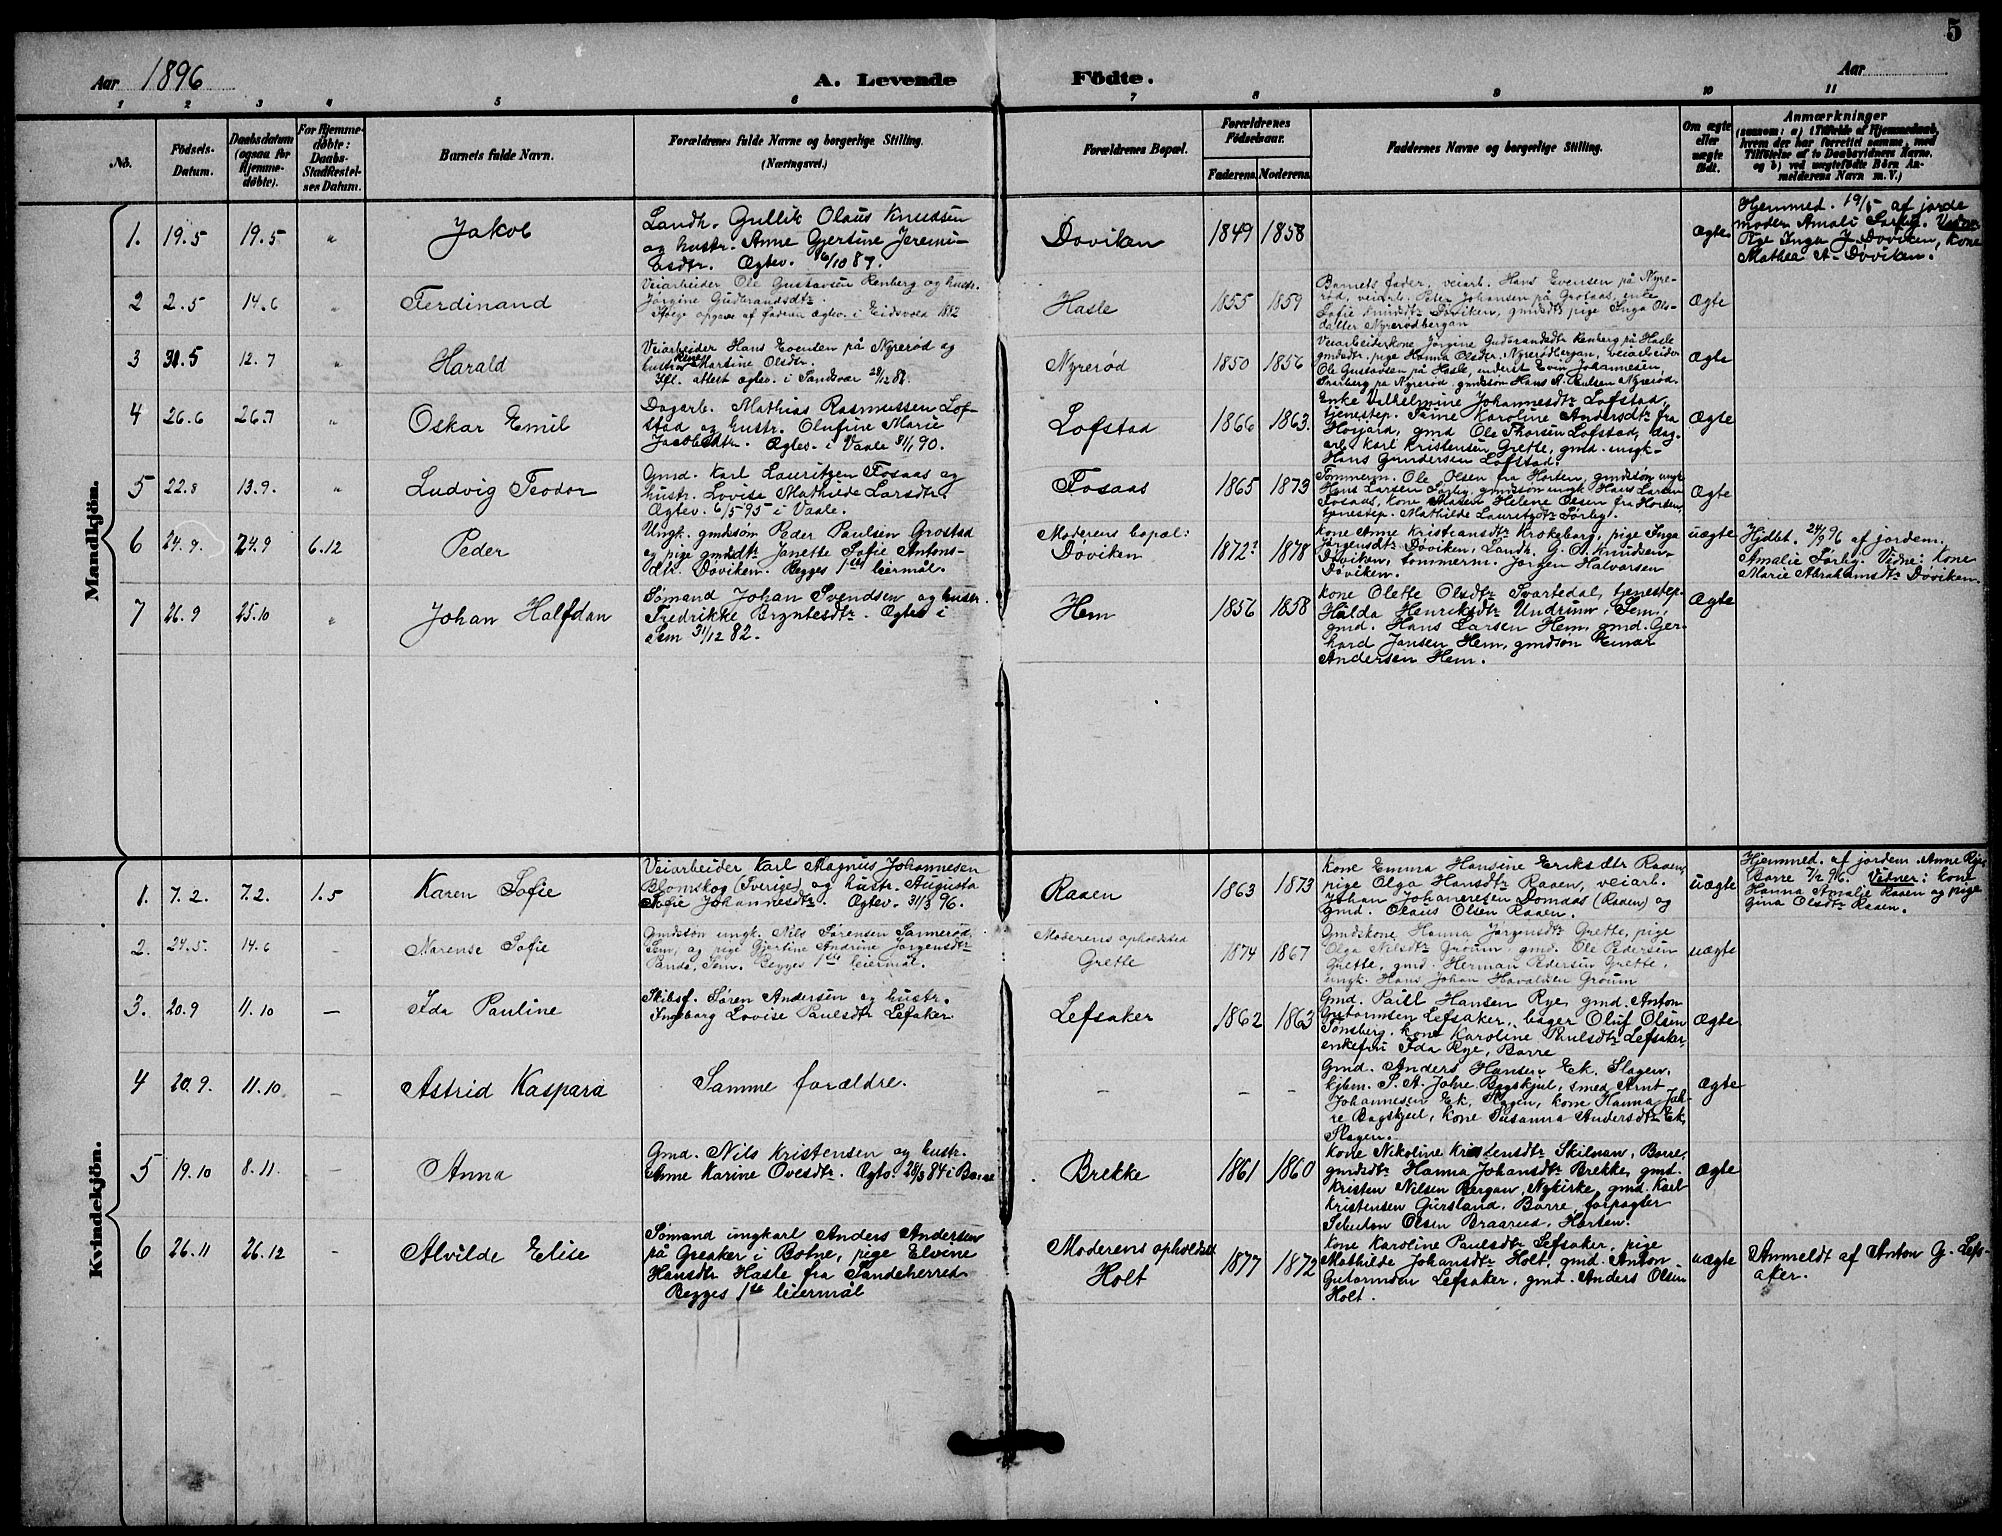 5
Aar 1896
A. Levende Födte.
Aar
1 2 3 4 5 6 7 8 9 10 11
No.
Födsels-
Datum.
Daabsdatum
(ogsaa for
Hjemme-
døbte).
For Hjemme-
døbte:
Daabs-
Stadfæstel-
ses Datum.
Barnets fulde Navn.
Forældrenes fulde Navne og borgerlige Stilling.
(Næringsvei.)
Forældrenes Bopæl.
Forældrenes
Fødselsaar.
Faderens. Moderens.
Faddernes Navne og borgerlige Stilling.
Om ægte
eller
uægte
født.
Anmærkninger
(saasom: a) i Tilfælde af Hjemmedaab,
hvem der har forrettet samme, med
Tilføielse af to Daabsvidners Navne,
og b) ved uægtefødte Børn An-
melderens Navn m. V.)
Mandkjön.
1. 19.5 19.5 "
Jakob
Landh. Gullik Olaus Knudsen
og hustr. Anne Gjertine Jeremi-
esdtr. Ægtev. 6/10 87.
Døviken
1849 1858
Ægte
Hjemmed. 19/5 af jorde
moder Amali Sørby. Vidner
Pige Inga J. Døviken, kone
Mathea A. Døviken.
2 2.5 14.6 "
Ferdinand
Veiarbeider Ole Gustavsen Renberg og hustr.
Jørgine Gudbrandsdtr.
Ifølge opgave af faderen ægtev. i Eidsvold 1882
Hasle
1855 1859
Barnets fader, veiarb. Hans Evensen på Nyre-
rød, veiarb. Peter Johansen på Grosaas, enke
Sofie Knudsdtr Døviken, gmdsdtr pige Inga Ols-
datter Nyrerødbergan
Ægte
3 31.5 12.7 "
Harald
Veiarbeider Hans Evensen på Nyrerød og
hustr. Rine Martine Olsdtr.
Ifl. attest ægtev. i Sandsvær 28/12 8
Nyrerød
1850 1856
Veiarbeiderkone Jørgine Gudbrandsdtr Renberg på Hasle
gmdsdtr. pige Hanna Olsdtr. Nyrerødbergan, veiarbeider
Ole Gustavsen på Hasle, underit Even Johannesen,
Saarberg på Nyrerød, gmdsøn Hans A. Paulsen Nyrerød.
Ægte
4 26.6 26.7 "
Oskar Emil
Dagarb. Mathias Rasmussen Lof-
stad og hustr. Olufine Marie
Jacobsdtr. Ægtev. i Vaale 31/1 90.
Lofstad
1866 1863.
Enke Vilhelmine Johannesdtr Lofstad,
tjenestep. Trine Karoline Andersdtr fra
Hoijord, gmd Ole Thorsen Lofstad, dag-
arb. Karl Kristensen Grette, gmd. ungk.
Hans Gundersen Lofstad.
Ægte
5 22.8 13.9. "
Ludvig Teodor
Gmd. Karl Lauritzen Fosaas og
hustr. Lovise Mathilde Larsdtr.
Ægtev. 6/5 95 i Vaale.
Fosaas
1865 1873
Tømmerm. Ole Olsen fra Horten, gmdsøn ungk
Hans Larsen Sørby, gmdsøn ungk Hans Larsen
Fosaas, kone Maren Helene Olsen fra Horten,
tjenestep. Mathilde Lauritzdtr Sørby.
Ægte
6 24.9. 24.9 6.12
Peder
Ungk. gmdssøn Peder Paulsen Grostad
og pige gmdsdtr Janette Sofie Antons-
dtr. Døviken. Begges 1ste leiermål.
Moderens bopæl:
Døviken
1872? 1878
Kone Anne Kristiansdtr Krokeborg, pige Inga
Jørgensdtr Døviken, Landh. G. O. Knudsen
Døviken, tømmerm. Jørgen Halvorsen
Døviken.
uægte
Hjdbt. 24/9 96 af jordem.
Amalie Sørby. Vidne: kone
Marie Abrahamsdtr Døviken.
7 26.9 25.10 "
Johan Halfdan
Sømand Johan Svendsen og hustr.
Fredrikke Bryntesdtr. Ægtev i
Sem 31/12 82.
Hem
1856 1858
Kone Olette Olsdtr Svartedal, tjenestep.
Hilda Henriksdtr Undrum, Sem,
gmd. Hans Larsen Hem, gmd. Ger-
hard Jansen Hem, gmdsøn Einar
Andersen Hem.
Ægte
Kvindekjön.
1. 7.2. 7.2. 1.5
Karen Sofie
Veiarbeider Karl Magnus Johannesen
Blomskog (Sverige) og hustr. Augusta
Sofie Johannesdtr. Ægtev. 31/3 96.
Raaen
1863 1873
Kone Emma Hansine Eriksdtr Raaen,
pige Olga Hansdtr Raaen, veiarb.
Johan Johannesen Domdas (Raaen) og
gmd. Olaus Olsen Raaen.
uægte
Hjemmed. af jordem. Anne Rye,
Borre 7/2 96. Vidner: kone
Hanna Amalie Raaen og pige
Gina Olsdtr Raaen.
2. 24.5. 14.6 -
Narense Sofie
Gmdssøn ungk. Nils Sørensen Sannerød,
Sem, og pige Gjertine Andrine Jørgensdtr
Panda, Sem. Begges 1ste leiermål.
Moderens opholdsted
Grette
1874 1867
Gmdskone Hanna Jørgensdtr Grette, pige
Olga Nilsdtr Groum, gmd. Ole Pedersen
Grette, gmd. Herman Pedersen Grette,
ungk. Hans Johan Havaldsen Groum
uægte
3. 20.9 11.10 -
Ida Pauline
Skibsf. Søren Andersen og hustr.
Ingeborg Lovise Paulsdtr Lefsaker
Lefsaker
1862 1863
Gmd. Paul Hansen Rye, gmd. Anton
Gutormsen Lefsaker, bager Oluf Olsen
Tønsberg, kone Karoline Paulsdtr Lefsaker,
enkefru Ida Rye, Borre
Ægte
4 20.9. 11.10 -
Astrid Kaspara
Samme forældre.
- - -
Gmd. Anders Hansen Ek, Slagen,
kjbm. S. A. Johre Bogskjul, smed Arnt
Johannesen Ek, Slagen, kone Hanna Joh-
re Bogskjul, kone Susanna Andersdtr Ek,
Slagen.
Ægte
5 19.10 8.11. -
Anna
Gmd. Nils Kristensen og hustr.
Anne Karine Ovesdtr. Ægtev. 28/3 84 i Borre
Brekke
1861 1860
Kone Nikoline Kristensdtr Skilnan, Borre,
gmdsdtr Hanna Johansdtr Brekke, gmd.
Kristen Nilsen Bergan, Nykirke, gmd. Karl
Kristensen Gursland, Borre, forpagter
Olsen Braarud, Horten.
Ægte
6 26.11 26.12 -
Alvilde Elise
Sømand ungkarl Anders Andersen
på Greaker i Botne, pige Elvine
Hansdtr Hasle fra Sandeherred.
Begges 1ste leiermål
Moderens opholdsst
Holt
1877 1872
Kone Karoline Paulsdtr Lefsaker, pige
Mathilde Johansdtr Holt, gmd. Anton
Gutormsen Lefsaker, gmd. Anders Olsen
Holt.
uægte
Anmeldt af Anton G. Lefs-
aker.